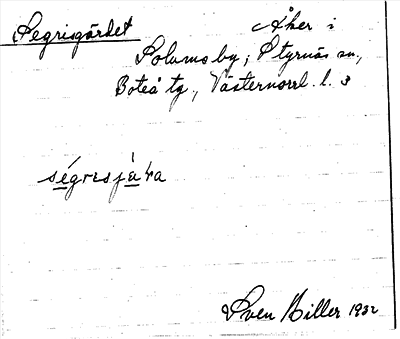 Segrisgärdet
Åker i
Solumsby, Styrnäs sn,
Boteå tg., Västernorrl. l. 3
ségrisjá
Sven Hiller 1932